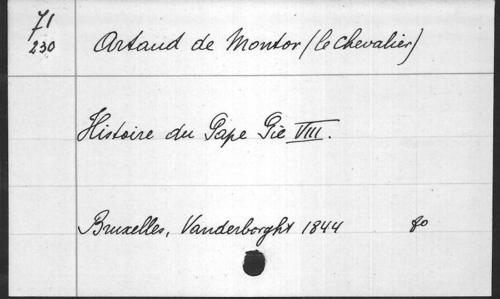 71
230
Artaud de Montor (le Chevalier)
Histoire du Pape Pie VIII.
Bruxelles, Vanderborght 1844 8o